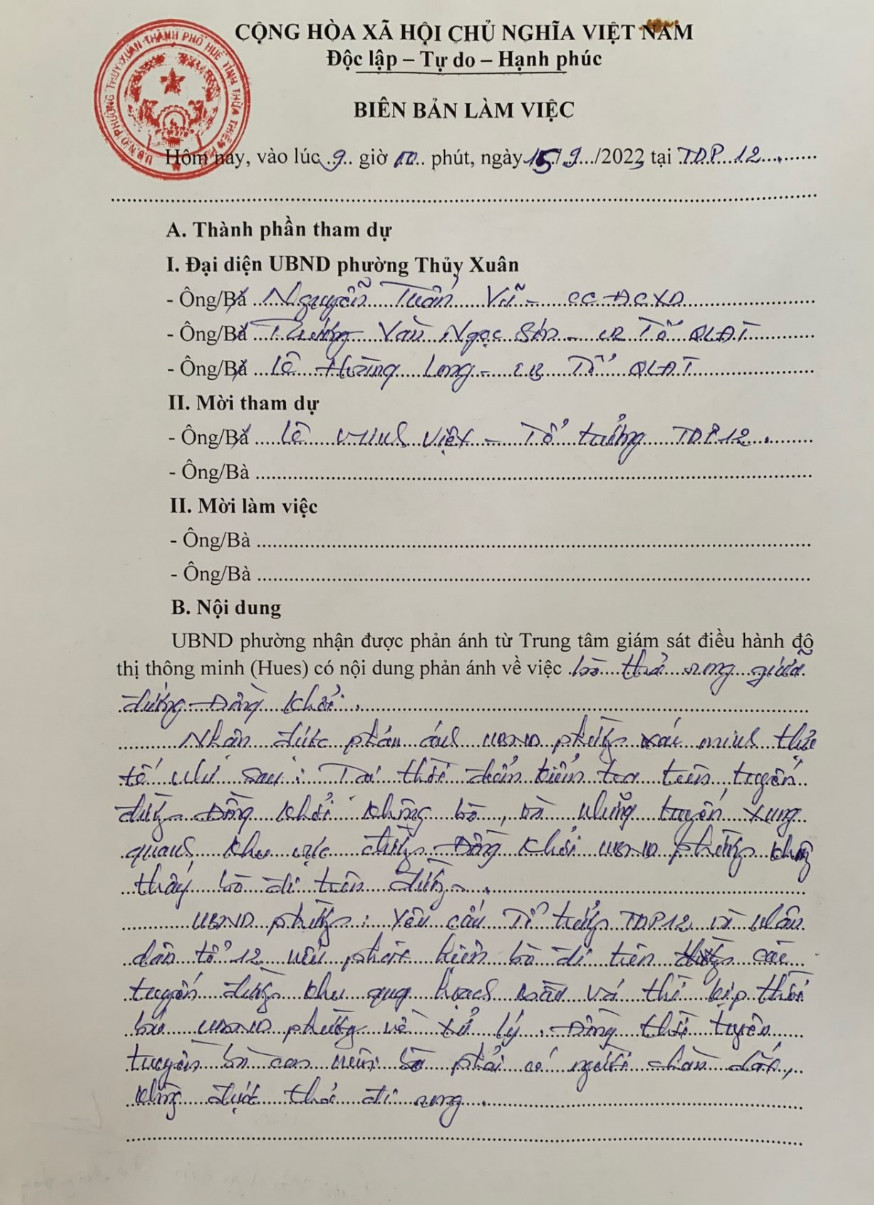 CỘNG HÒA XÃ HỘI CHỦ NGHĨA VIỆT NAM
Độc lập – Tự do – Hạnh phúc
U.B.N.D PHƯỜNG THỦY XUÂN THÀNH PHỐ HUẾ TỈNH THỪA THIÊN
BIÊN BẢN LÀM VIỆC
Hôm nay, vào lúc 9 giờ 00 phút, ngày 15/9/2023 tại TDP 12
A. Thành phần tham dự
I. Đại diện UBND phường Thủy Xuân
- Ông/Bà Nguyễn Tuấn Vũ - CC ĐCXD
- Ông/Bà Trương Văn Ngọc Sơn - CB Tổ QLĐT
- Ông/Bà Lê Hoàng Long - CB Tổ QLĐT
II. Mời tham dự
- Ông/Bà Lê Minh Việt - Tổ trưởng TDP12.
- Ông/Bà
II. Mời làm việc
- Ông/Bà
- Ông/Bà
B. Nội dung
UBND phường nhận được phản ánh từ Trung tâm giám sát điều hành đô
thị thông minh (Hues) có nội dung phản ánh về việc bò thả rong giữa
đường Đồng Khởi.
Nhận được phản ánh UBND phường xác minh thực
tế như sau: Tại thời điểm kiểm tra trên tuyến
đường Đồng Khởi không bò, và những tuyến xung
quanh khu vực đường Đồng Khởi UBND phường không
thấy bò đi trên đường.
UBND phường: Yêu cầu Tổ trưởng TDP12 và nhân
dân tổ 12 nếu phát hiện bò đi trên các
tuyến đường khu quy hoạch thì kịp thời
báo UBND phường về xử lý. Đồng thời tuyên
truyền bà con nuôi bò phải có người chăn dắt,
không được thả đi rong.